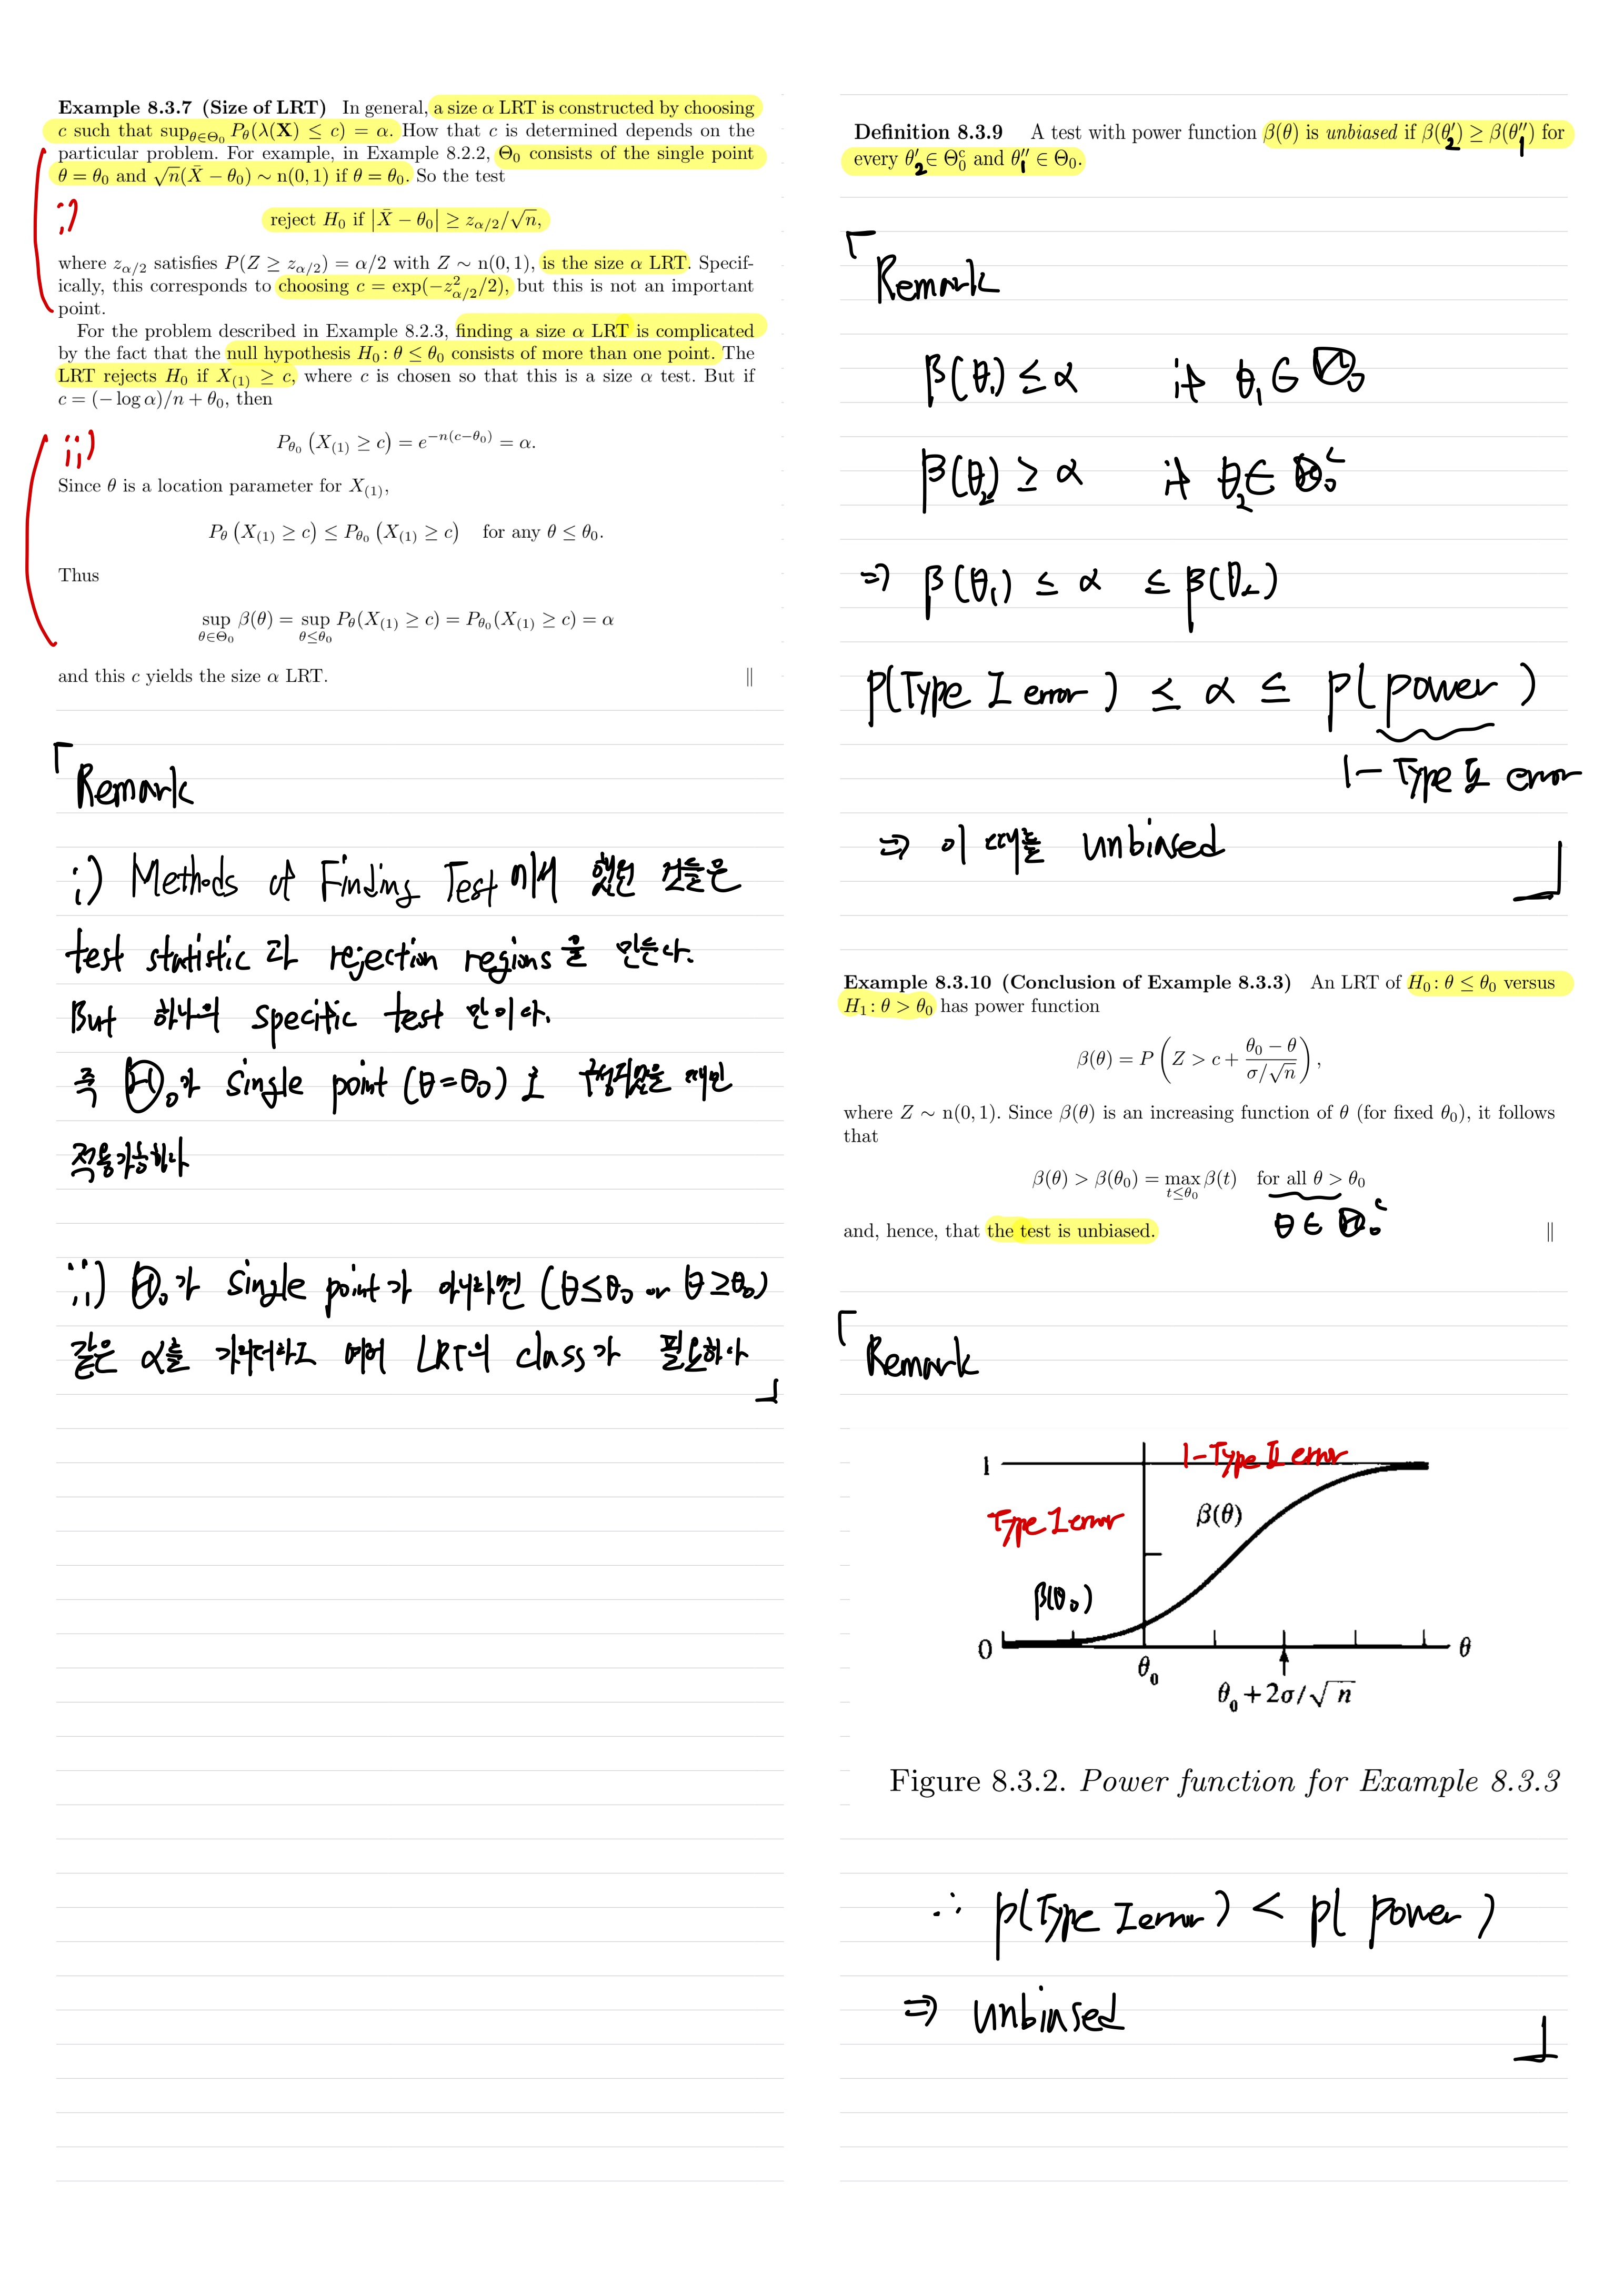 Example 8.3.7 (Size of LRT) In general, a size α LRT is constructed by choosing
c such that sup_{θ∈Θ₀} P_θ(λ(X) ≤ c) = α. How that c is determined depends on the
particular problem. For example, in Example 8.2.2, Θ₀ consists of the single point
θ = θ₀ and √n(X̄ − θ₀) ∼ n(0, 1) if θ = θ₀. So the test
i)
reject H₀ if |X̄ − θ₀| ≥ z_{α/2}/√n,
where z_{α/2} satisfies P(Z ≥ z_{α/2}) = α/2 with Z ∼ n(0, 1), is the size α LRT. Specif-
ically, this corresponds to choosing c = exp(−z²_{α/2}/2), but this is not an important
point.
For the problem described in Example 8.2.3, finding a size α LRT is complicated
by the fact that the null hypothesis H₀: θ ≤ θ₀ consists of more than one point. The
LRT rejects H₀ if X₍₁₎ ≥ c, where c is chosen so that this is a size α test. But if
c = (− log α)/n + θ₀, then
ii)
P_{θ₀} (X₍₁₎ ≥ c) = e^{−n(c−θ₀)} = α.
Since θ is a location parameter for X₍₁₎,
P_θ (X₍₁₎ ≥ c) ≤ P_{θ₀} (X₍₁₎ ≥ c) for any θ ≤ θ₀.
Thus
sup_{θ∈Θ₀} β(θ) = sup_{θ≤θ₀} P_θ(X₍₁₎ ≥ c) = P_{θ₀}(X₍₁₎ ≥ c) = α
and this c yields the size α LRT. ‖
「Remark
i) Methods of Finding Test 에서 했던 것들은
test statistic 과 rejection regions을 만든다.
But 하나의 specific test 만이다.
즉 Θ₀가 single point (θ=θ₀)로 구성되있을 때만
적용가능하다
ii) Θ₀가 single point가 아니라면 (θ≤θ₀ or θ≥θ₀)
같은 α를 가지더라도 여러 LRT의 class가 필요하다
」
Definition 8.3.9 A test with power function β(θ) is unbiased if β(θ′₂) ≥ β(θ″₁) for
every θ′₂ ∈ Θ₀ᶜ and θ″₁ ∈ Θ₀.
「Remark
β(θ₁) ≤ α if θ₁ ∈ Θ₀
β(θ₂) ≥ α if θ₂ ∈ Θ₀ᶜ
⇒ β(θ₁) ≤ α ≤ β(θ₂)
P(Type I error) ≤ α ≤ P(power)
1− Type II error
⇒ 이 때를 unbiased
」
Example 8.3.10 (Conclusion of Example 8.3.3) An LRT of H₀: θ ≤ θ₀ versus
H₁: θ > θ₀ has power function
β(θ) = P(Z > c + (θ₀ − θ)/(σ/√n)),
where Z ∼ n(0, 1). Since β(θ) is an increasing function of θ (for fixed θ₀), it follows
that
β(θ) > β(θ₀) = max_{t≤θ₀} β(t) for all θ > θ₀
θ ∈ Θ₀ᶜ
and, hence, that the test is unbiased. ‖
「Remark
1
1-Type II error
Type I error
β(θ)
β(θ₀)
0
θ
θ₀
θ₀ + 2σ/√n
Figure 8.3.2. Power function for Example 8.3.3
∴ P(Type I error) < P( power )
⇒ unbiased
」